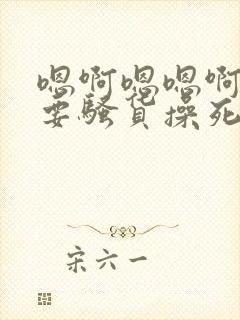 嗯啊嗯嗯啊
要骚货操死
宋六一